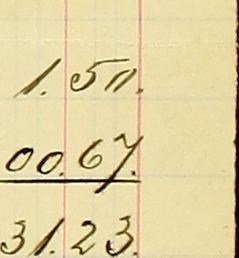 1.50.
00.67.
31.23.